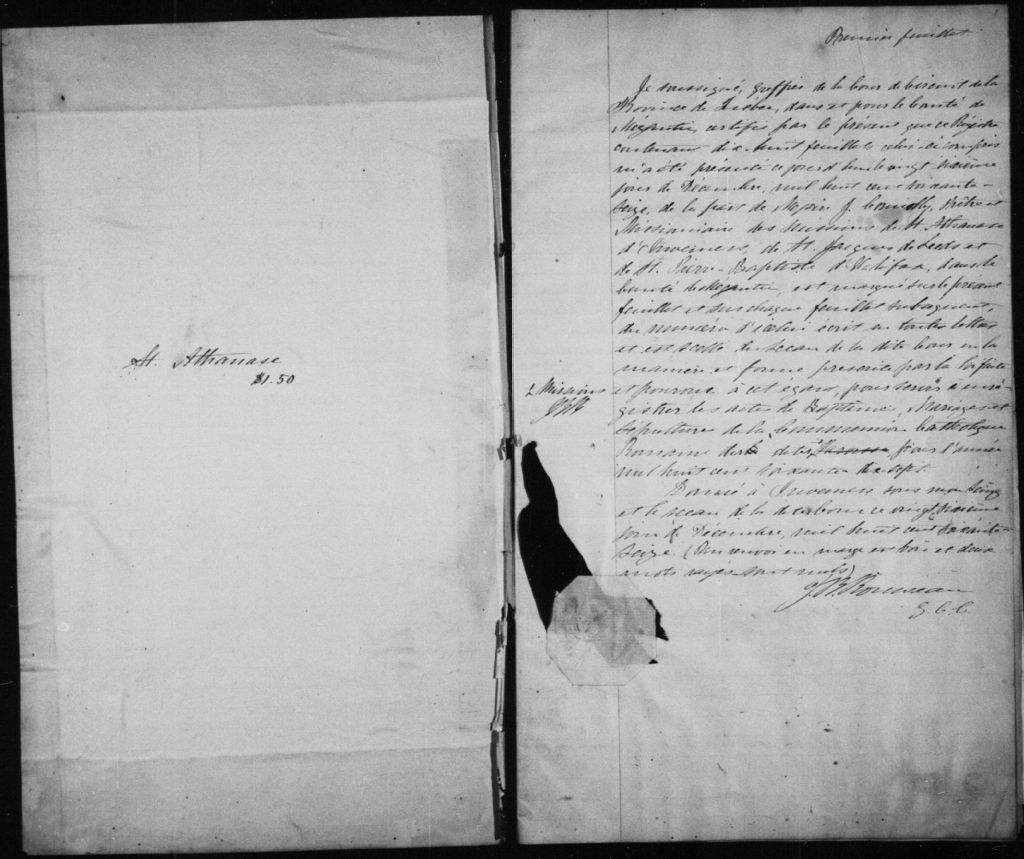 St. Athanase
$1.50
Premier feuillet
Je soussigné, greffier de la Cour de Circuit de la
Province de Québec, dans et pour le Comté de
Mégantic, certifie par le présent que ce Régistre
contenant dix-huit feuillets celui-ci compris
m'a été présenté ce jourd'hui le vingt sixième
jour de Décembre, mil huit cent soixante-
seize, de la part de Messire J. Connolly, Prêtre et
Missionnaire des Missions de St. Athanase
d'Inverness, de St. Jacques de Leeds et
de St. Pierre-Baptiste d'Halifax, dans le
Comté de Mégantic, est marqué sur le présent
feuillet et sur chaque feuillet subséquent,
du numéro d'icelui écrit en toutes lettres
et est scellé du sceau de la dite Cour en la
manière et forme prescrite par la loi faite
et pourvue à cet égard, pour servir à enré-
gistrer les actes de Baptême, Mariages et
Sépulture de la Communion Catholique
Romaine des dites pour l'année
mil huit cent soixante dix-sept.
2 Missions
JBR
Donné à Inverness sous mon Seing
et le sceau de la dite Cour ce vingt sixième
jour de Décembre, mil huit cent soixante-
seize (Un renvoi en marge est bon et deux
mots rayés sont nuls)
J B Rousseau
G. C. C.